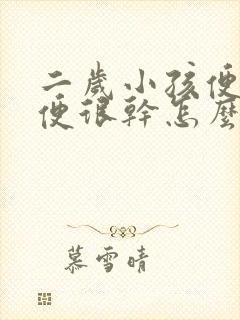 二歲小孩便
便很幹怎麼
慕雪晴